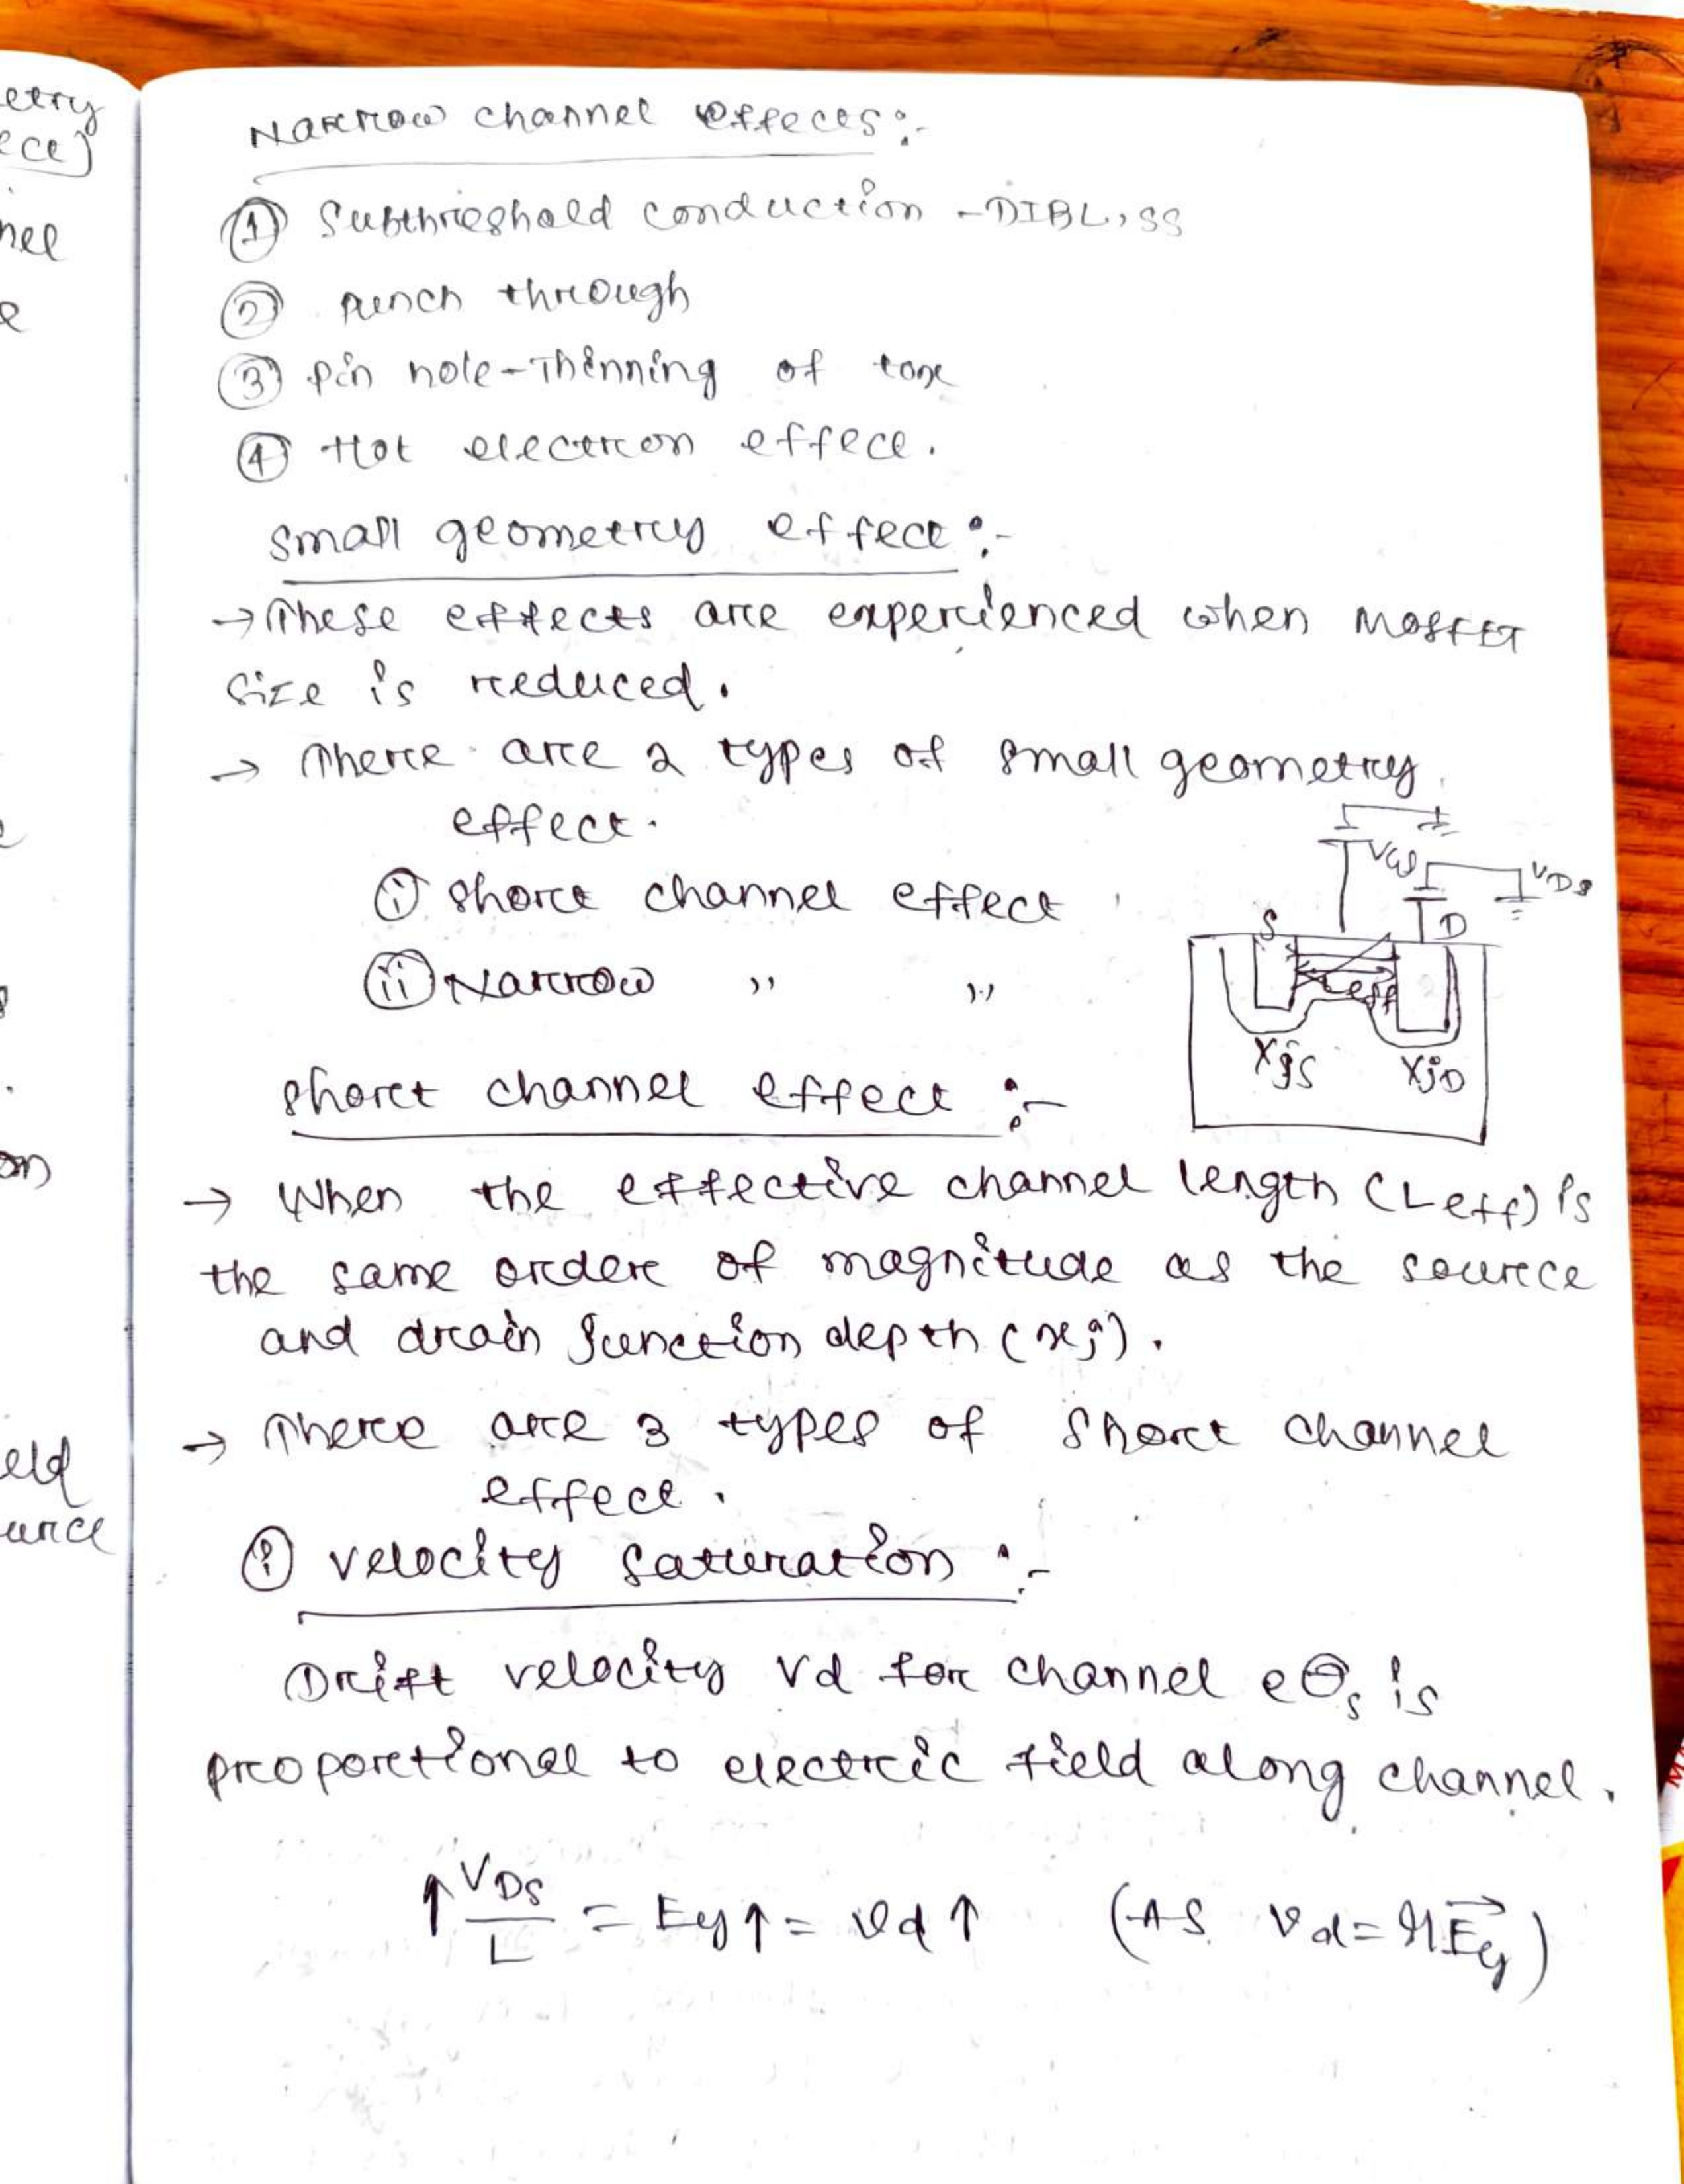 etry
ect)
nel
e
on
eld
urce
Narrow channel effects:-
① Subthreshold conduction - DIBL, SS
② punch through
③ pin hole - Thinning of tox
④ Hot electron effect.
Small geometry effect :-
→ These effects are experienced when MOSFET
size is reduced.
→ There are 2 types of small geometry
effect.
ⓘ short channel effect
(ii) Narrow " "
VGS
VDS
S
D
Leff
XjS
XjD
short channel effect :-
→ When the effective channel length (Leff) is
the same order of magnitude as the source
and drain junction depth (xj).
→ There are 3 types of short channel
effect.
ⓘ velocity saturation :-
Drift velocity Vd for channel e⊖s is
proportional to electric field along channel.
↑ VDS/L = Ey ↑ = vd ↑ (As vd = μ E⃗y)